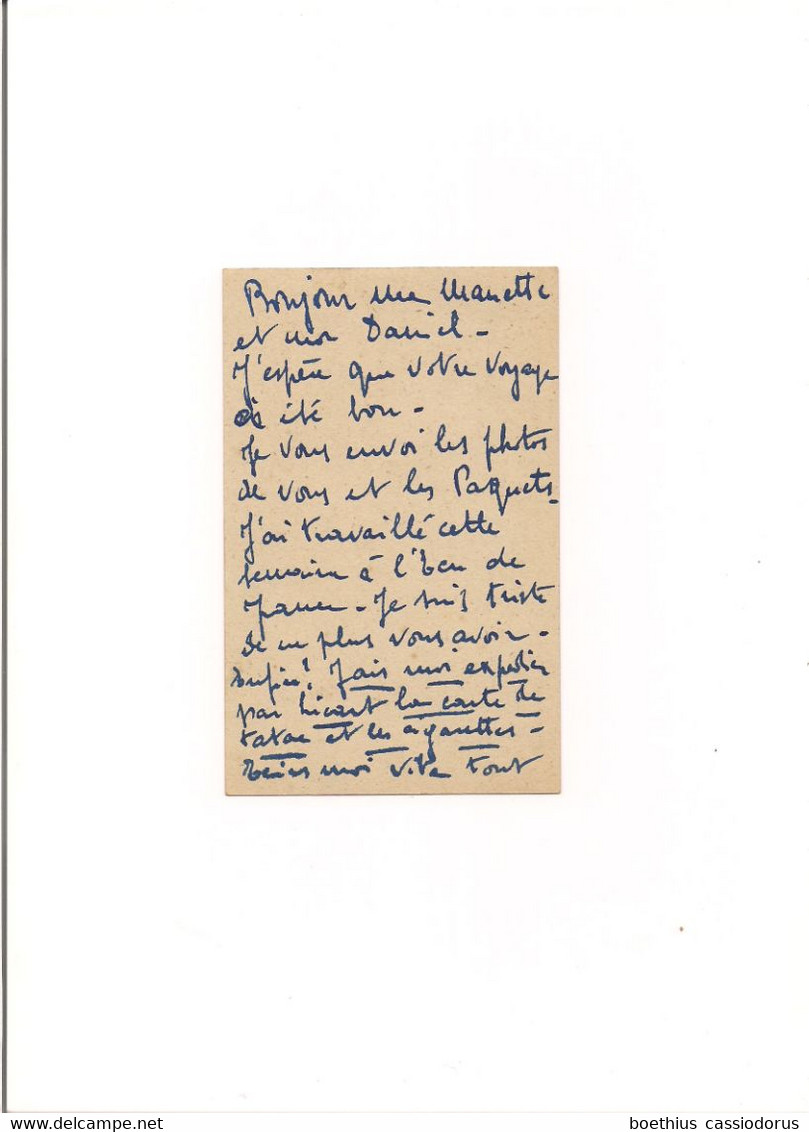 Bonjour ma Manette
et mon Daniel -
J'espère que votre voyage
a été bon -
Je vous envoi les photos
de vous et les Paquets -
J'ai travaillé cette
semaine à l'
Je suis triste
de ne plus vous avoir -
Enfin! Fais moi expédier
par la carte de
tabac et les cigarettes -
Écris moi vite tout
delcampe.net
boethius cassiodorus